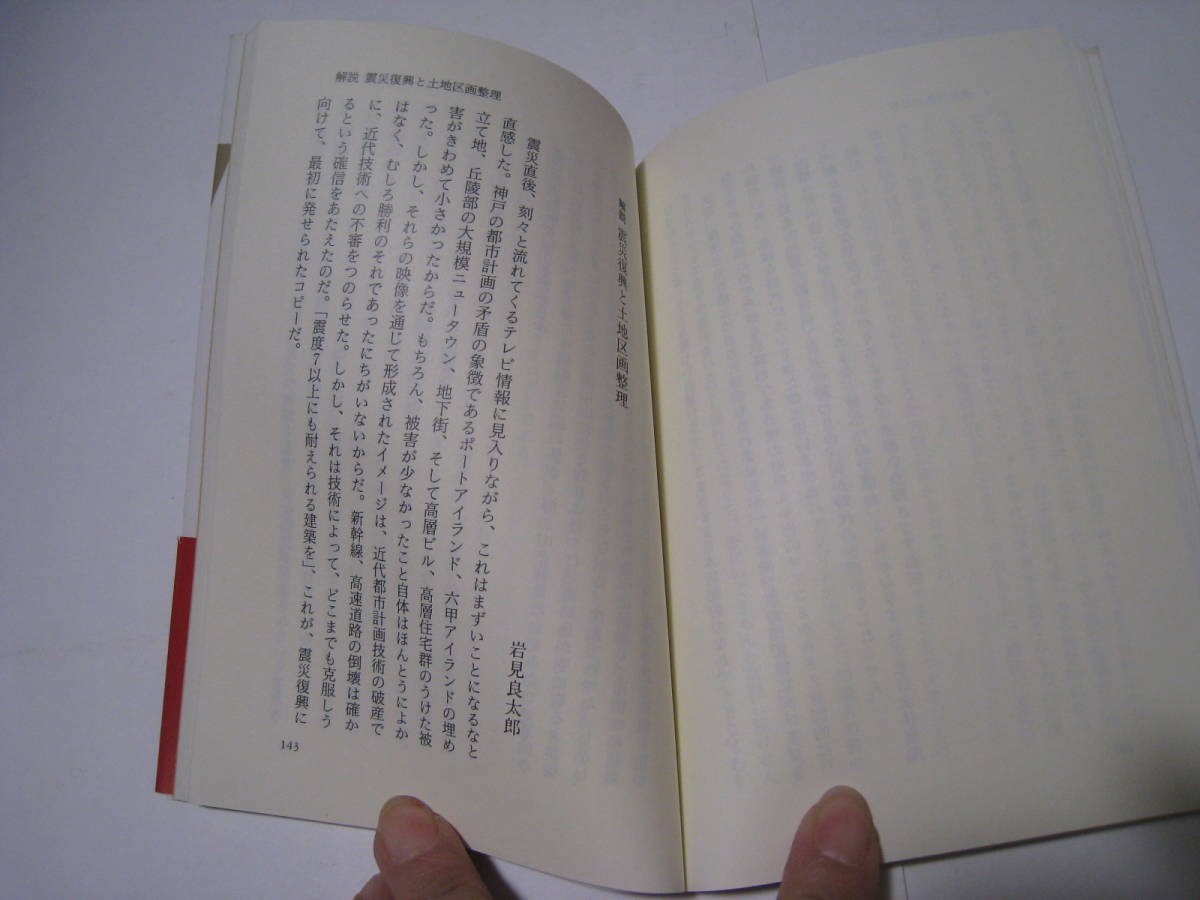 解説 震災復興と土地区画整理
解説 震災復興と土地区画整理
岩見良太郎
震災直後、刻々と流れてくるテレビ情報に見入りながら、これはまずいことになるなと
直感した。神戸の都市計画の矛盾の象徴であるポートアイランド、六甲アイランドの埋め
立て地、丘陵部の大規模ニュータウン、地下街、そして高層ビル、高層住宅群のうけた被
害がきわめて小さかったからだ。もちろん、被害が少なかったこと自体はほんとうによか
った。しかし、それらの映像を通じて形成されたイメージは、近代都市計画技術の破産で
はなく、むしろ勝利のそれであったにちがいないからだ。新幹線、高速道路の倒壊は確か
に、近代技術への不審をつのらせた。しかし、それは技術によって、どこまでも克服しう
るという確信をあたえたのだ。「震度7以上にも耐えられる建築を」、これが、震災復興に
向けて、最初に発せられたコピーだ。
143